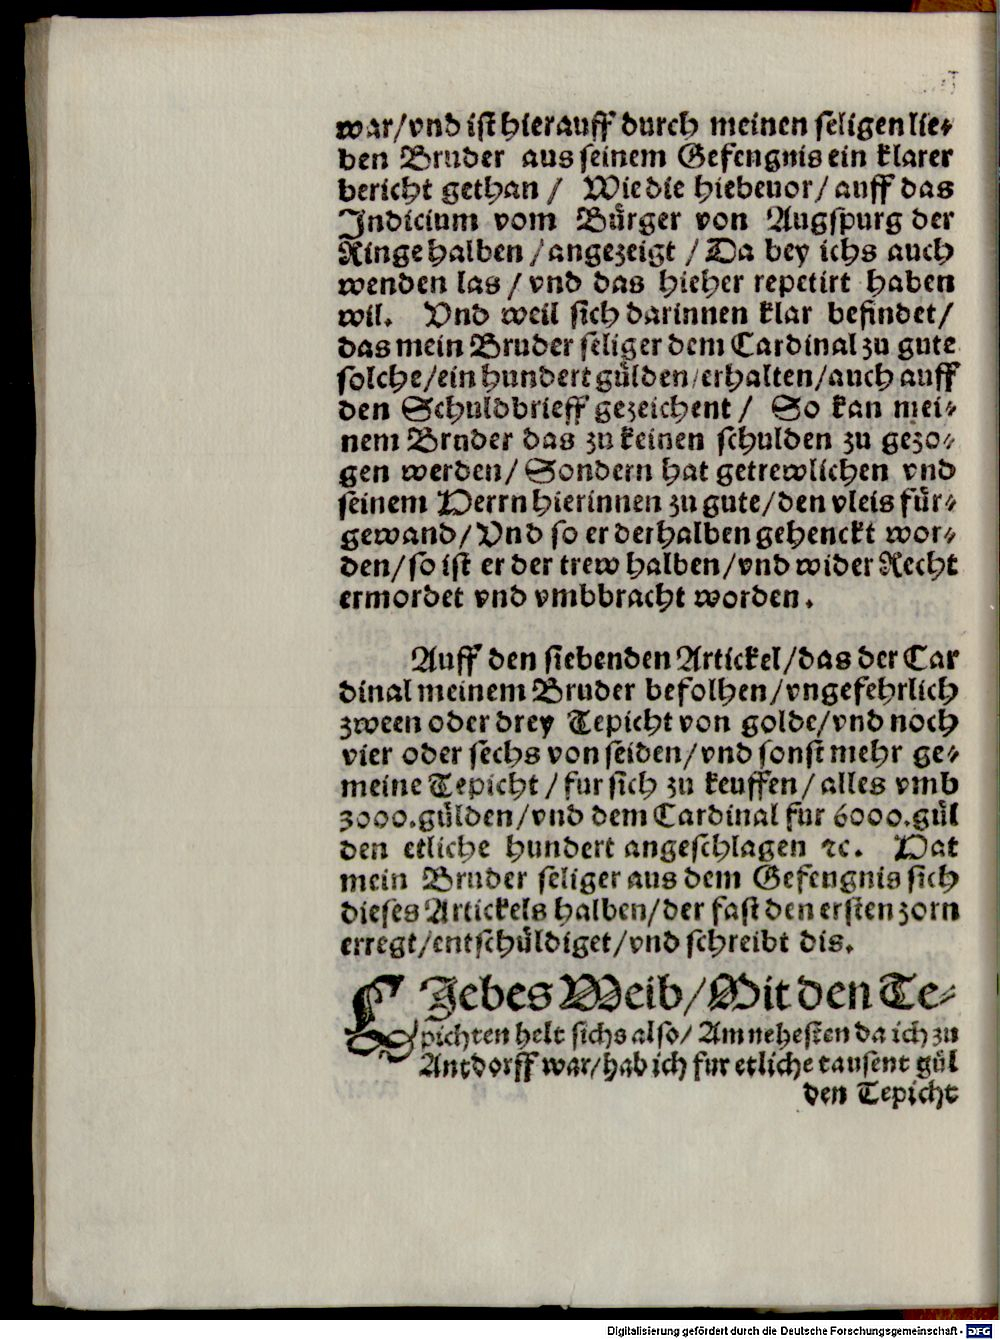 war/vnd ist hierauff durch meinen seligen lie-
ben Bruder aus seinem Gefengnis ein klarer
bericht gethan / Wie die hiebeuor/ auff das
Indicium vom Bürger von Augspurg der
Ringe halben / angezeigt / Da bey ichs auch
wenden las / vnd das hieher repetirt haben
wil. Vnd weil sich darinnen klar befindet/
das mein Bruder seliger dem Cardinal zu gute
solche/ein hundert gülden/erhalten/auch auff
den Schuldbrieff gezeichent / So kan mei-
nem Brnder das zu keinen schulden zu gezo-
gen werden/ Sondern hat getrewlichen vnd
seinem Herrn hierinnen zu gute/den vleis für-
gewand/ Vnd so er derhalben gehenckt wor-
den/ so ist er der trew halben/vnd wider Recht
ermordet vnd vmbbracht worden.
Auff den siebenden Artickel/das der Car
dinal meinem Bruder befolhen/vngefehrlich
zween oder drey Tepicht von golde/vnd noch
vier oder sechs von seiden/vnd sonst mehr ge-
meine Tepicht / fur sich zu keuffen/ alles vmb
3000.gülden/vnd dem Cardinal fur 6000.gül
den etliche hundert angeschlagen ꝛc. Hat
mein Bruder seliger aus dem Gefengnis sich
dieses Artickels halben/der fast den ersten zorn
erregt/entschüldiget/vnd schreibt dis.
LIebes Weib/Mit den Te-
pichten helt sichs also/ Am nehesten da ich zu
Antdorff war/hab ich fur etliche tausent gül
den Tepicht
Digitalisierung gefördert durch die Deutsche Forschungsgemeinschaft - DFG